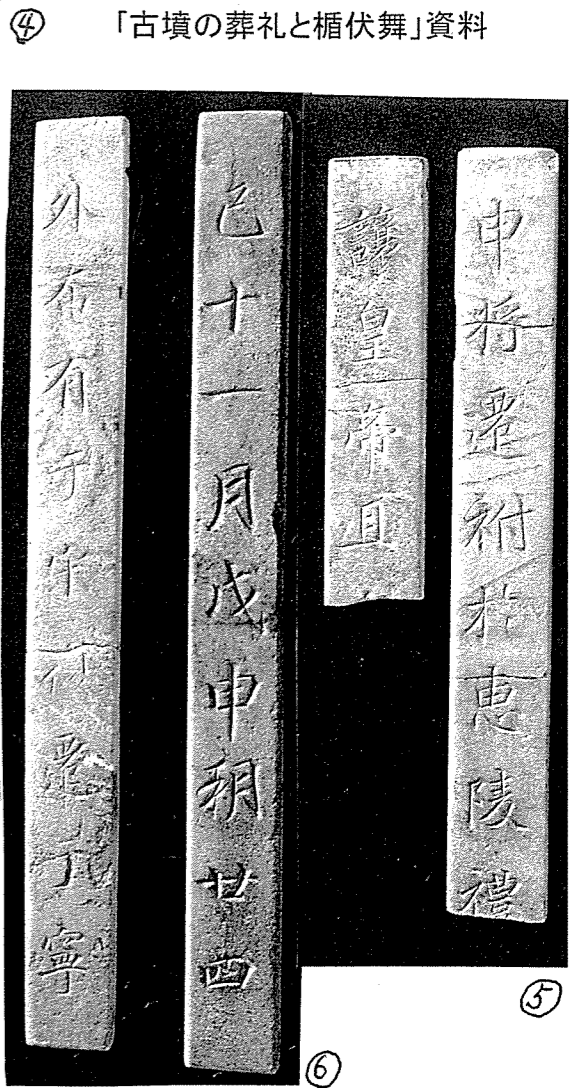 ④ 「古墳の葬礼と楯伏舞」資料
申将遷祔於恵陵禮
讓皇帝
⑤
巳十一月戊申朔廿四
外布有 寧
⑥